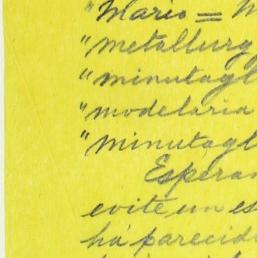 "Mario = M
"metallurg
"minutagl
"modelaria
"minutagl
Esperan
evite un es
há parecid